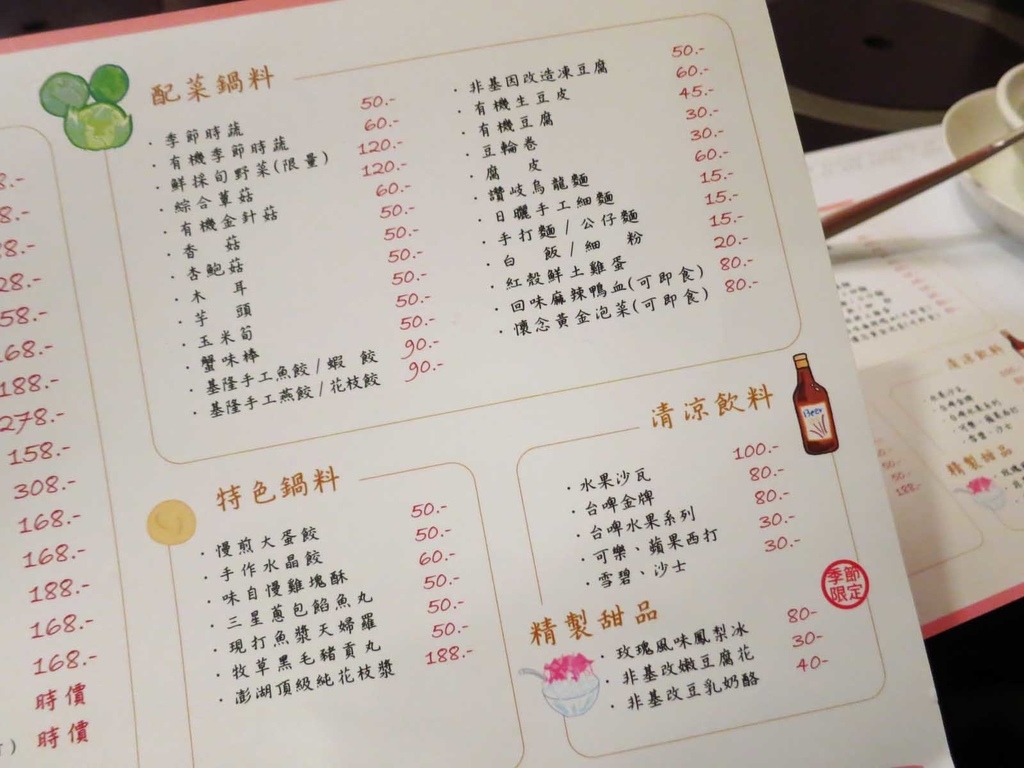 8.-
8.-
8.-
28.-
58.-
168.-
188.-
278.-
158.-
308.-
168.-
168.-
188.-
168.-
168.-
時價
) 時價
配菜鍋料
· 季節時蔬 50.-
· 有機季節時蔬 60.-
· 鮮採旬野菜(限量) 120.-
· 綜合蕈菇 120.-
· 有機金針菇 60.-
· 香 菇 50.-
· 杏鮑菇 50.-
· 木 耳 50.-
· 芋 頭 50.-
· 玉米筍 50.-
· 蟹味棒 50.-
· 基隆手工魚餃/蝦 餃 90.-
· 基隆手工燕餃/花枝餃 90.-
· 非基因改造凍豆腐 50.-
· 有機生豆皮 60.-
· 有機豆腐 45.-
· 豆輪卷 30.-
· 腐 皮 30.-
· 讚岐烏龍麵 60.-
· 日曬手工細麵 15.-
· 手打麵/公仔麵 15.-
· 白 飯/細 粉 15.-
· 紅殼鮮土雞蛋 20.-
· 回味麻辣鴨血(可即食) 80.-
· 懷念黃金泡菜(可即食) 80.-
特色鍋料
· 慢煎大蛋餃 50.-
· 手作水晶餃 50.-
· 味自慢雞塊酥 60.-
· 三星蔥包餡魚丸 50.-
· 現打魚漿天婦羅 50.-
· 牧草黑毛豬貢丸 50.-
· 澎湖頂級純花枝漿 188.-
清涼飲料
Beer
· 水果沙瓦 100.-
· 台啤金牌 80.-
· 台啤水果系列 80.-
· 可樂、蘋果西打 30.-
· 雪碧、沙士 30.-
精製甜品
季節
限定
· 玫瑰風味鳳梨冰 80-
· 非基改嫩豆腐花 30-
· 非基改豆乳奶酪 40-
清涼飲料
精製甜品